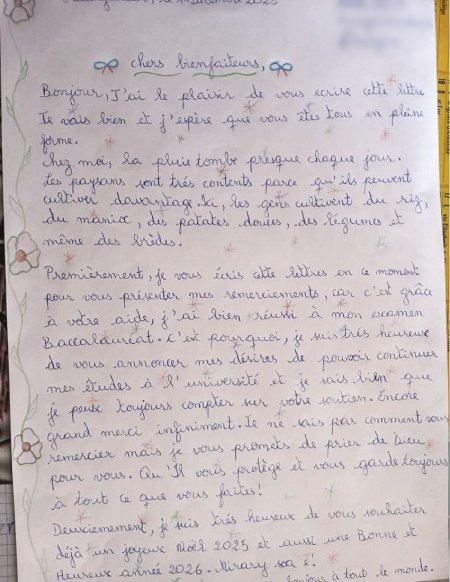 Décembre 2025
chers bienfaiteurs,
Bonjour, J'ai le plaisir de vous ecrire cette lettre
Je vais bien et j'espère que vous êtes tous en pleine
forme.
Chez moi, la pluie tombe presque chaque jour.
Les paysans sont trés contents parce qu'ils peuvent
cultiver davantage. Ici, les gens cultivent du riz,
du manioc, des patates douces, des légumes et
même des brèdes.
Premièrement, je vous écris cette lettres en ce moment
pour vous présenter mes remerciements, car c'est grâce
à votre aide, j'ai bien réussi à mon examen
Baccalauréat. C'est pourquoi, je suis trés heureuse
de vous annoncer mes désires de pouvoir continuer
mes études à l'université et je sais bien que
je peux toujours compter sur votre soutien. Encore
grand merci infiniment. Je ne sais pas comment vous
remercier mais je vous promets de prier de Dieu
pour vous. Qu'Il vous protège et vous garde toujours
à tout ce que vous faites!
Deuxièmement, je suis trés heureux de vous souhaiter
déjà un joyeux Noël 2025 et aussi une Bonne et
Heureux année 2026. Mirary soa é!
bonjour à tout le monde.